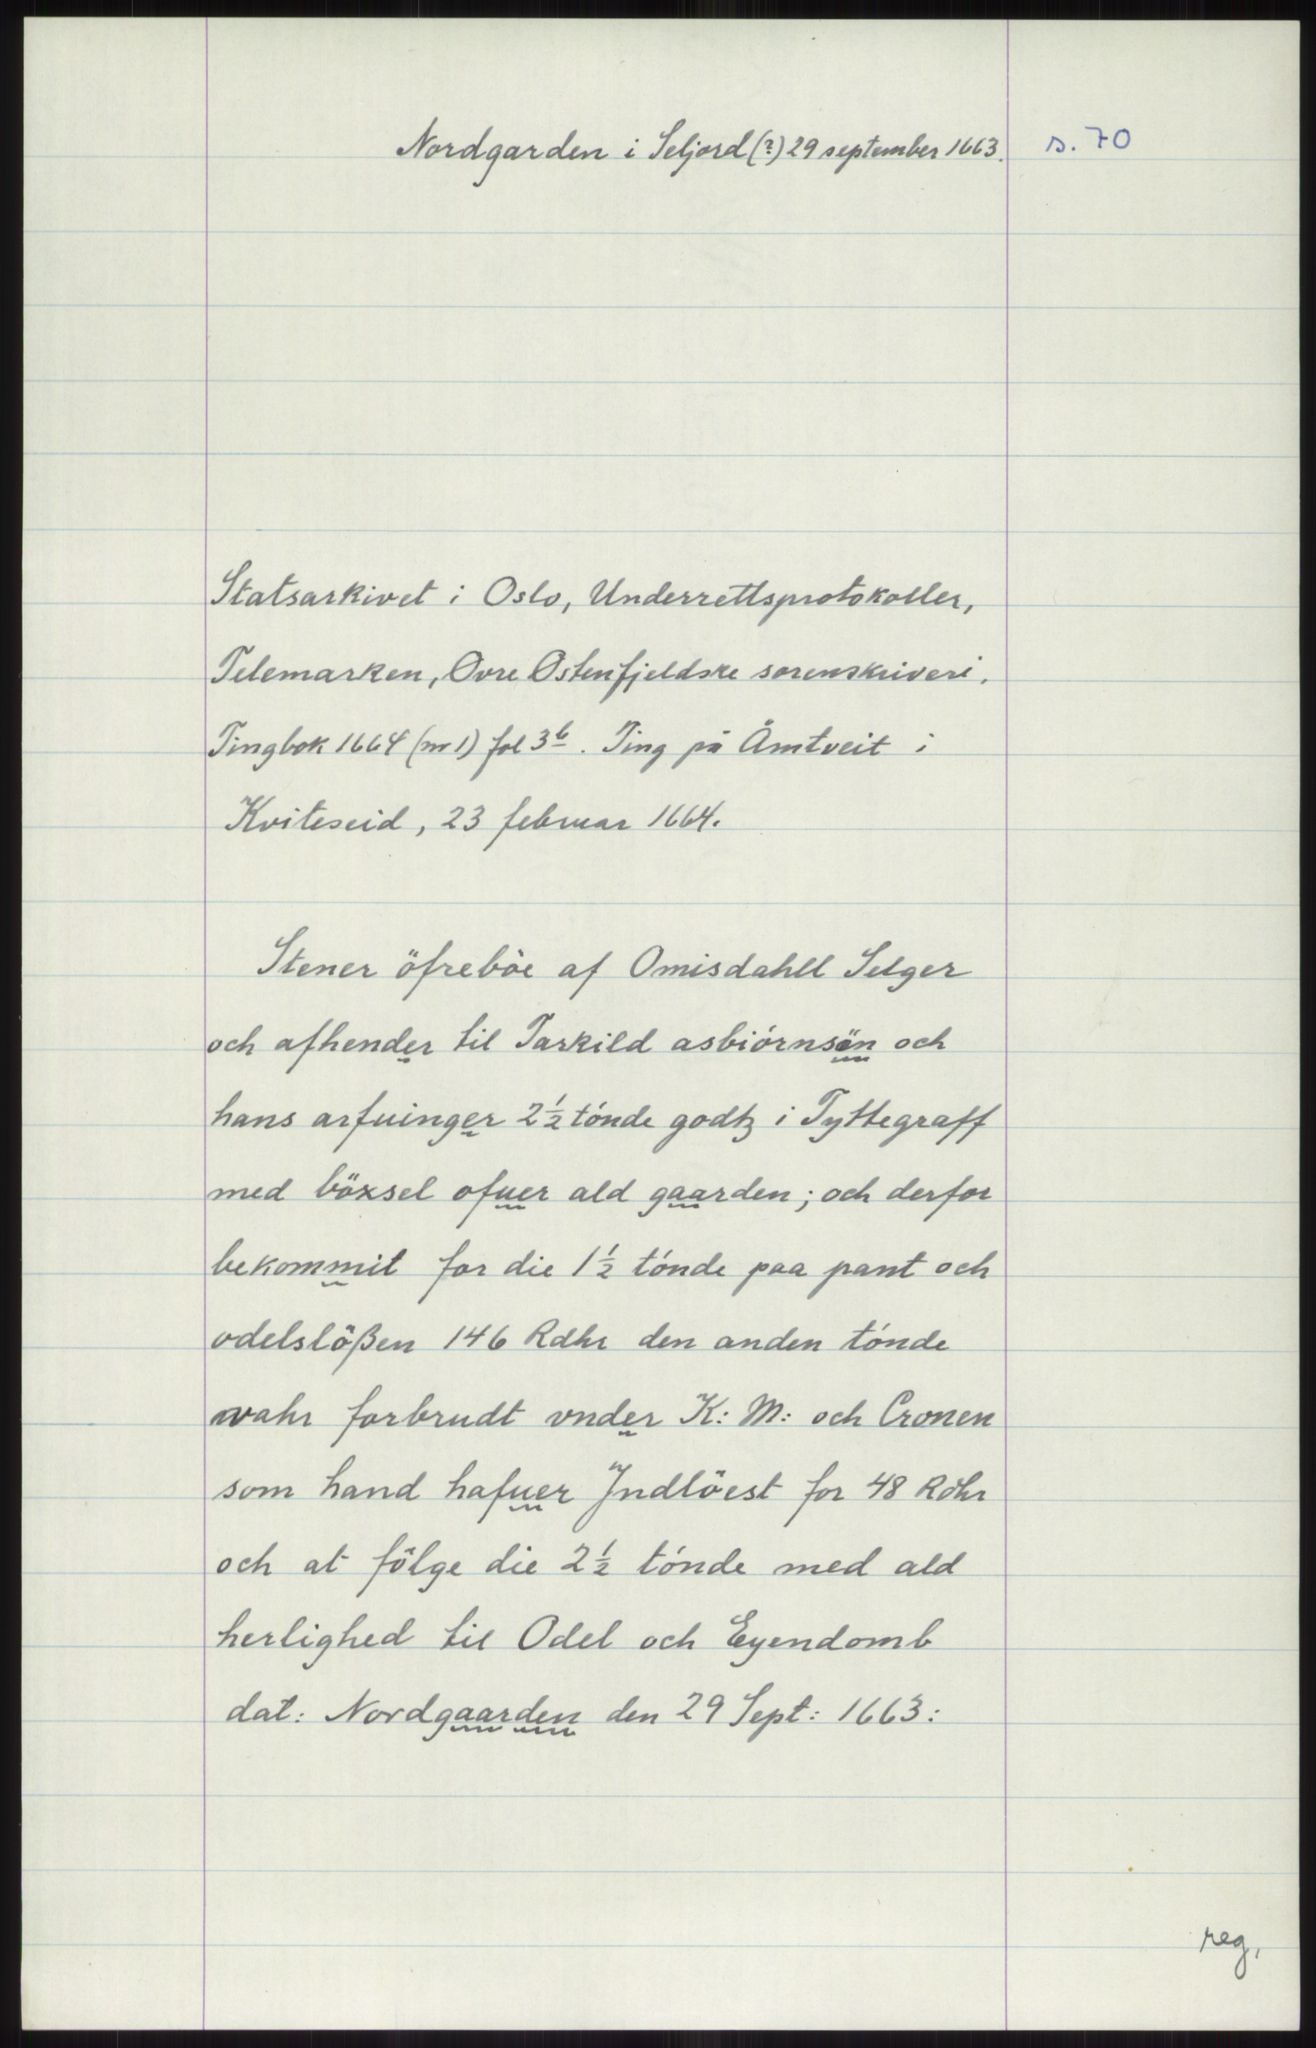 Nordgarden i Seljord (?) 29 september 1663. s. 70
Statsarkivet i Oslo, Underrettsprotokoller,
Telemarken, Ovre Ostenfjeldske sorenskriveri.
Tingbok 1664 (nr 1) fol 3b. Ting på Åmtveit i
Kviteseid, 23 februar 1664.
Stener öfreböe af Omisdahll Selger
och afhender til Tarkild asbiórnsön och
hans arfuinger 2½ tónde godtz i Tyttegraff
med böxsel ofuer ald gaarden; och derfor
bekommit for die 1½ tónde paa pant och
odelslößen 146 Rdhr den anden tónde
wahr forbrudt vnder K: M: och Cronen
som hand hafuer Jndlöest for 48 Rdhr
och at fölge die 2½ tónde med ald
herlighed til Odel och Eyendomb
dat: Nordgaarden den 29 Sept: 1663:
reg,